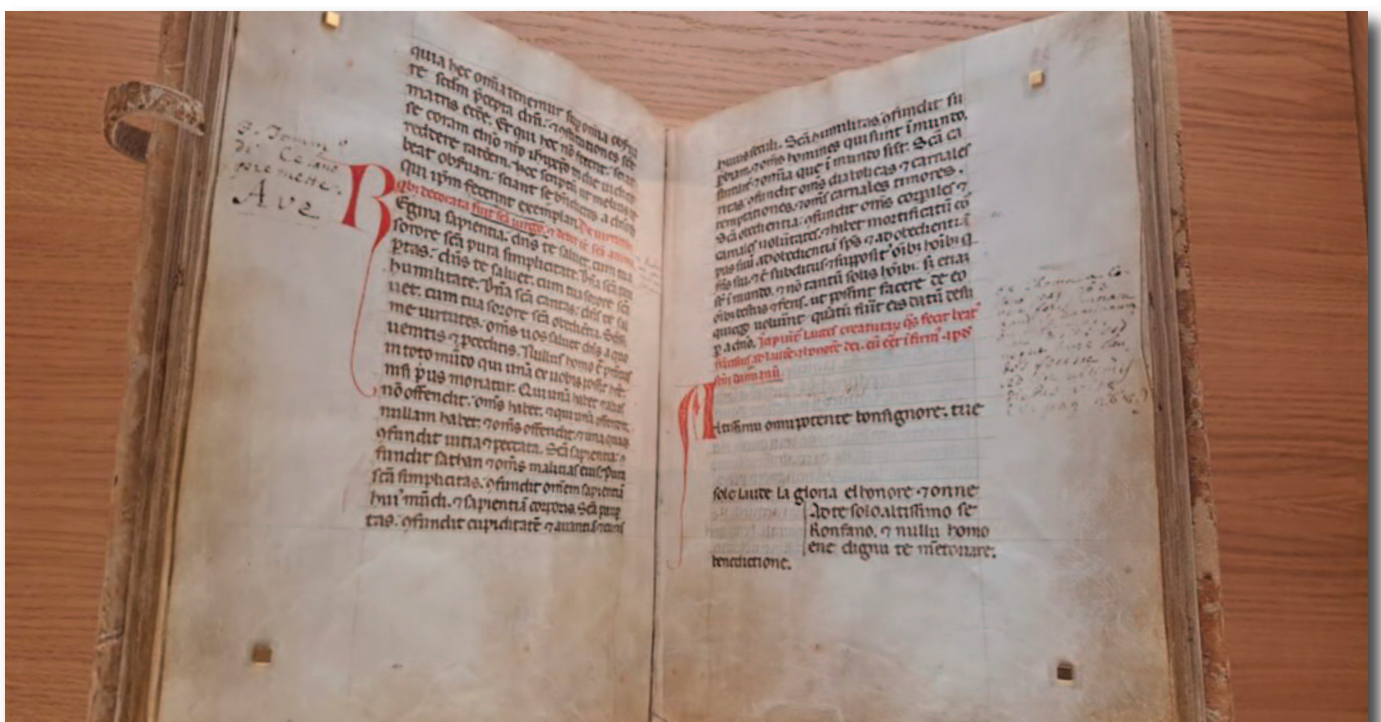 quia hec om̄ia tenemur sup om̄ia obſua
re ſecdm p̄cepta dn̄i. ⁊ ↄſtitutiones ſcē
matris eccẽ. Et qui hec nō fecerit. ſciat
se coram dn̄o
reddere rationem. hec ſcripta ut melius
beat obſuari. ſciant ſe bn̄dictos a dn̄o
Qui ip̄m fecerint exemplari. De uirtutibꝰ
qbꝰ decorata fuit ſcā uirgo. ⁊ debꝫ eē ſcā anima
Regina ſapientia. dn̄s te ſaluet. cum tua
ſorore ſcā pura ſimplicitate. Dn̄a ſcā pau
ptas. dn̄s te ſaluet. cum tua ſorore ſcā
humilitate. Dn̄a ſcā caritas. dn̄s te ſal
uet. cum tua ſorore ſcā obediētia.
me uirtutes. om̄s uos ſaluet dn̄s a quo
uenitis ⁊ p̄ceditis. Nullus homo ē penitus
in toto mūdo qui unā ex uobis poſſit hēre
niſi pꝰ moriatur. Qui unā habet ⁊ alias
nō offendit. om̄s habet. ⁊ qui unā offendit.
nullam habet. ⁊ om̄s offendit. ⁊ una queqꝫ
ↄfundit uitia ⁊ peccata. Scā ſapientia. ↄ
fundit ſathan ⁊ om̄s malitias eius. Pura
ſcā ſimplicitas. ↄfundit omnem ſapientiā
huiꝰ mūdi. ⁊ ſapientiā corporis. Scā paup
tas. ↄfundit cupiditatē ⁊ auaritiā ⁊ curas
Ave
huius ſeculi. Scā humilitas. ↄfundit ſu
pbiam. ⁊ om̄s homines qui ſunt ī mundo.
ſimiliter ⁊ om̄ia que ī mundo ſūt. Scā ca
ritas. ↄfundit om̄s diabolicas ⁊ carnales
temptationes. ⁊ om̄s carnales timores.
Scā obedientia. ↄfundit om̄s corpales ⁊
carnales uolūtates. ⁊ habet mortificatū co
pus ſuū ad obedientiā ſp̄s ⁊ ad obedientiā
fr̄is ſui. ⁊ ē ſubditus ⁊ ſuppoſitꝰ oībꝰ hoībꝰ q
ſt̄ ī mundo. ⁊ nō tantū ſolis hoībꝰ. ſꝫ etiā
oībꝰ beſtiis ⁊ feris. ut poſſint facere de eo
quicqd uoluerint quātū fuīt eis datū deſu
p a dn̄o. Incipiūt Laudes creaturaꝝ q̄s fecit beatꝰ
francisus ad laudē ⁊ honorē dei. cū eēt ī firmꝰ apd
ſcm̄ damianū.
Altissimu omnipotente bonſignore. tue
ſole laude la gloria elhonore ⁊ onne
Adte ſolo altiſſimo ſe
Konfano. ⁊ nullu homo
ene dignu te mētouare.
benedictione.